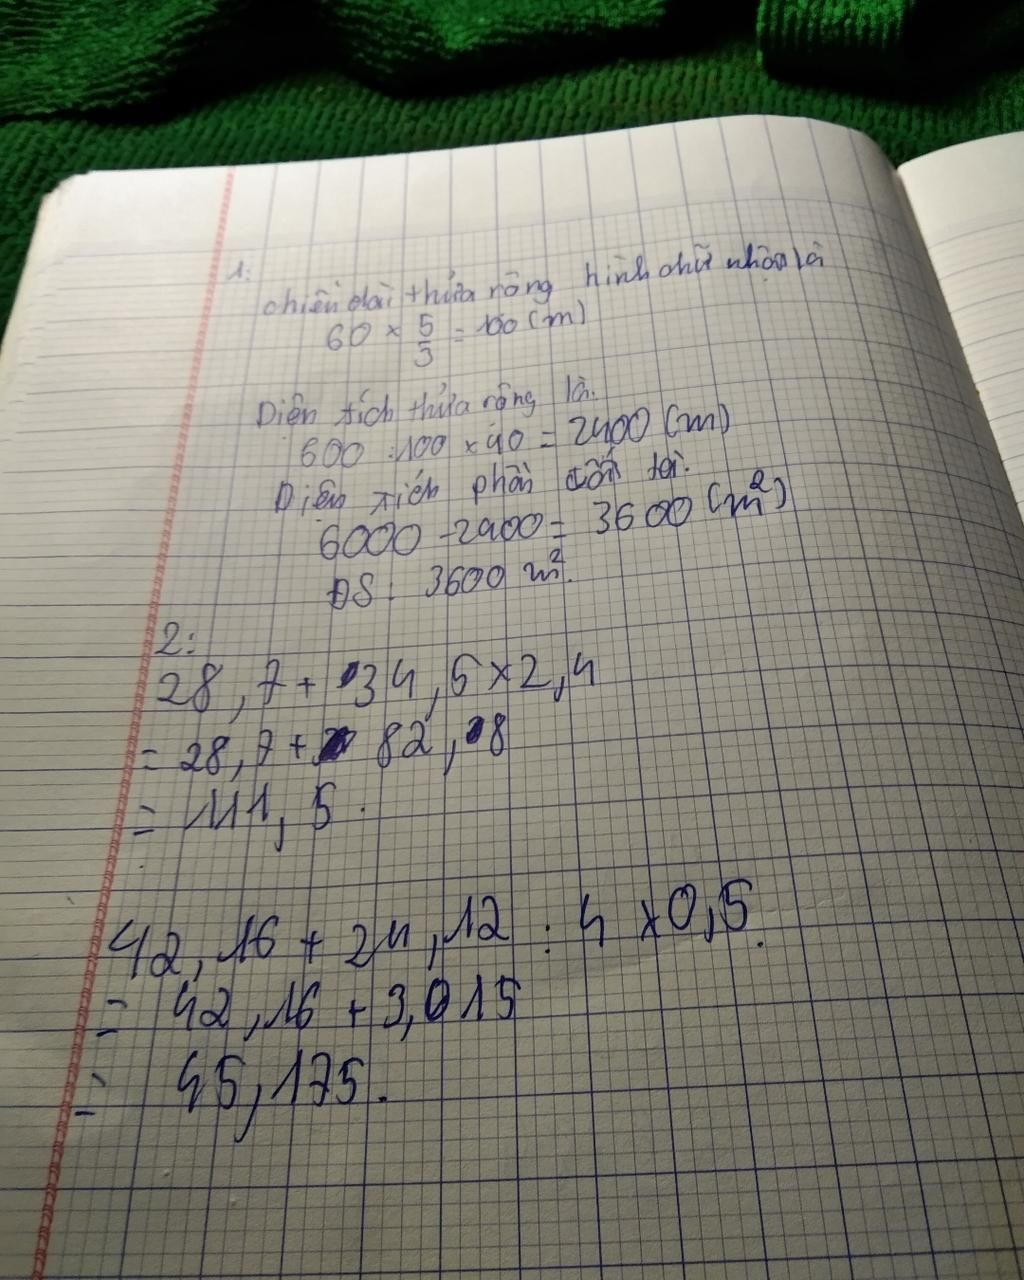 1:
chiều dài thửa rộng hình chữ nhật là
60 × 5/3 = 100 (m)
Diện tích thửa rộng là.
600 : 100 × 40 = 2400 (m)
Diện tích phần còn lại.
6000 - 2400 = 3600 (m²)
ĐS : 3600 m².
2:
28,7 + 34,5 × 2,4
= 28,7 + 82,8
= 111,5.
42,16 + 24,12 : 4 × 0,5.
= 42,16 + 3,015
= 45,175.